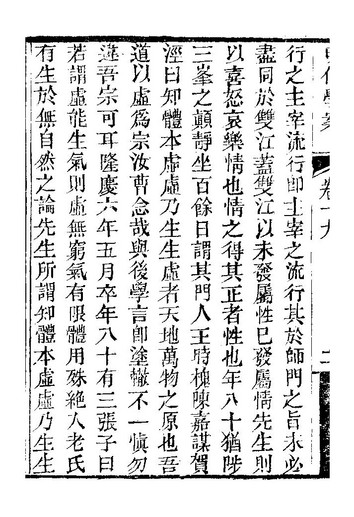 行之主宰流行卽主宰之流行其於師門之旨未必
盡同於雙江蓋雙江以未發屬性已發屬情先生則
以喜怒哀樂情也情之得其正者性也年八十猶陟
三峯之顛靜坐百餘日謂其門人王時槐陳嘉謀賀
涇曰知體本虛虛乃生生虛者天地萬物之原也吾
道以虛爲宗汝曹念哉與後學言卽塗轍不一愼勿
違吾宗可耳隆慶六年五月卒年八十有三張子曰
若謂虛能生氣則虛無窮氣有限體用殊絶人老氏
有生於無自然之論先生所謂知體本虛虛乃生生
卷十九
二